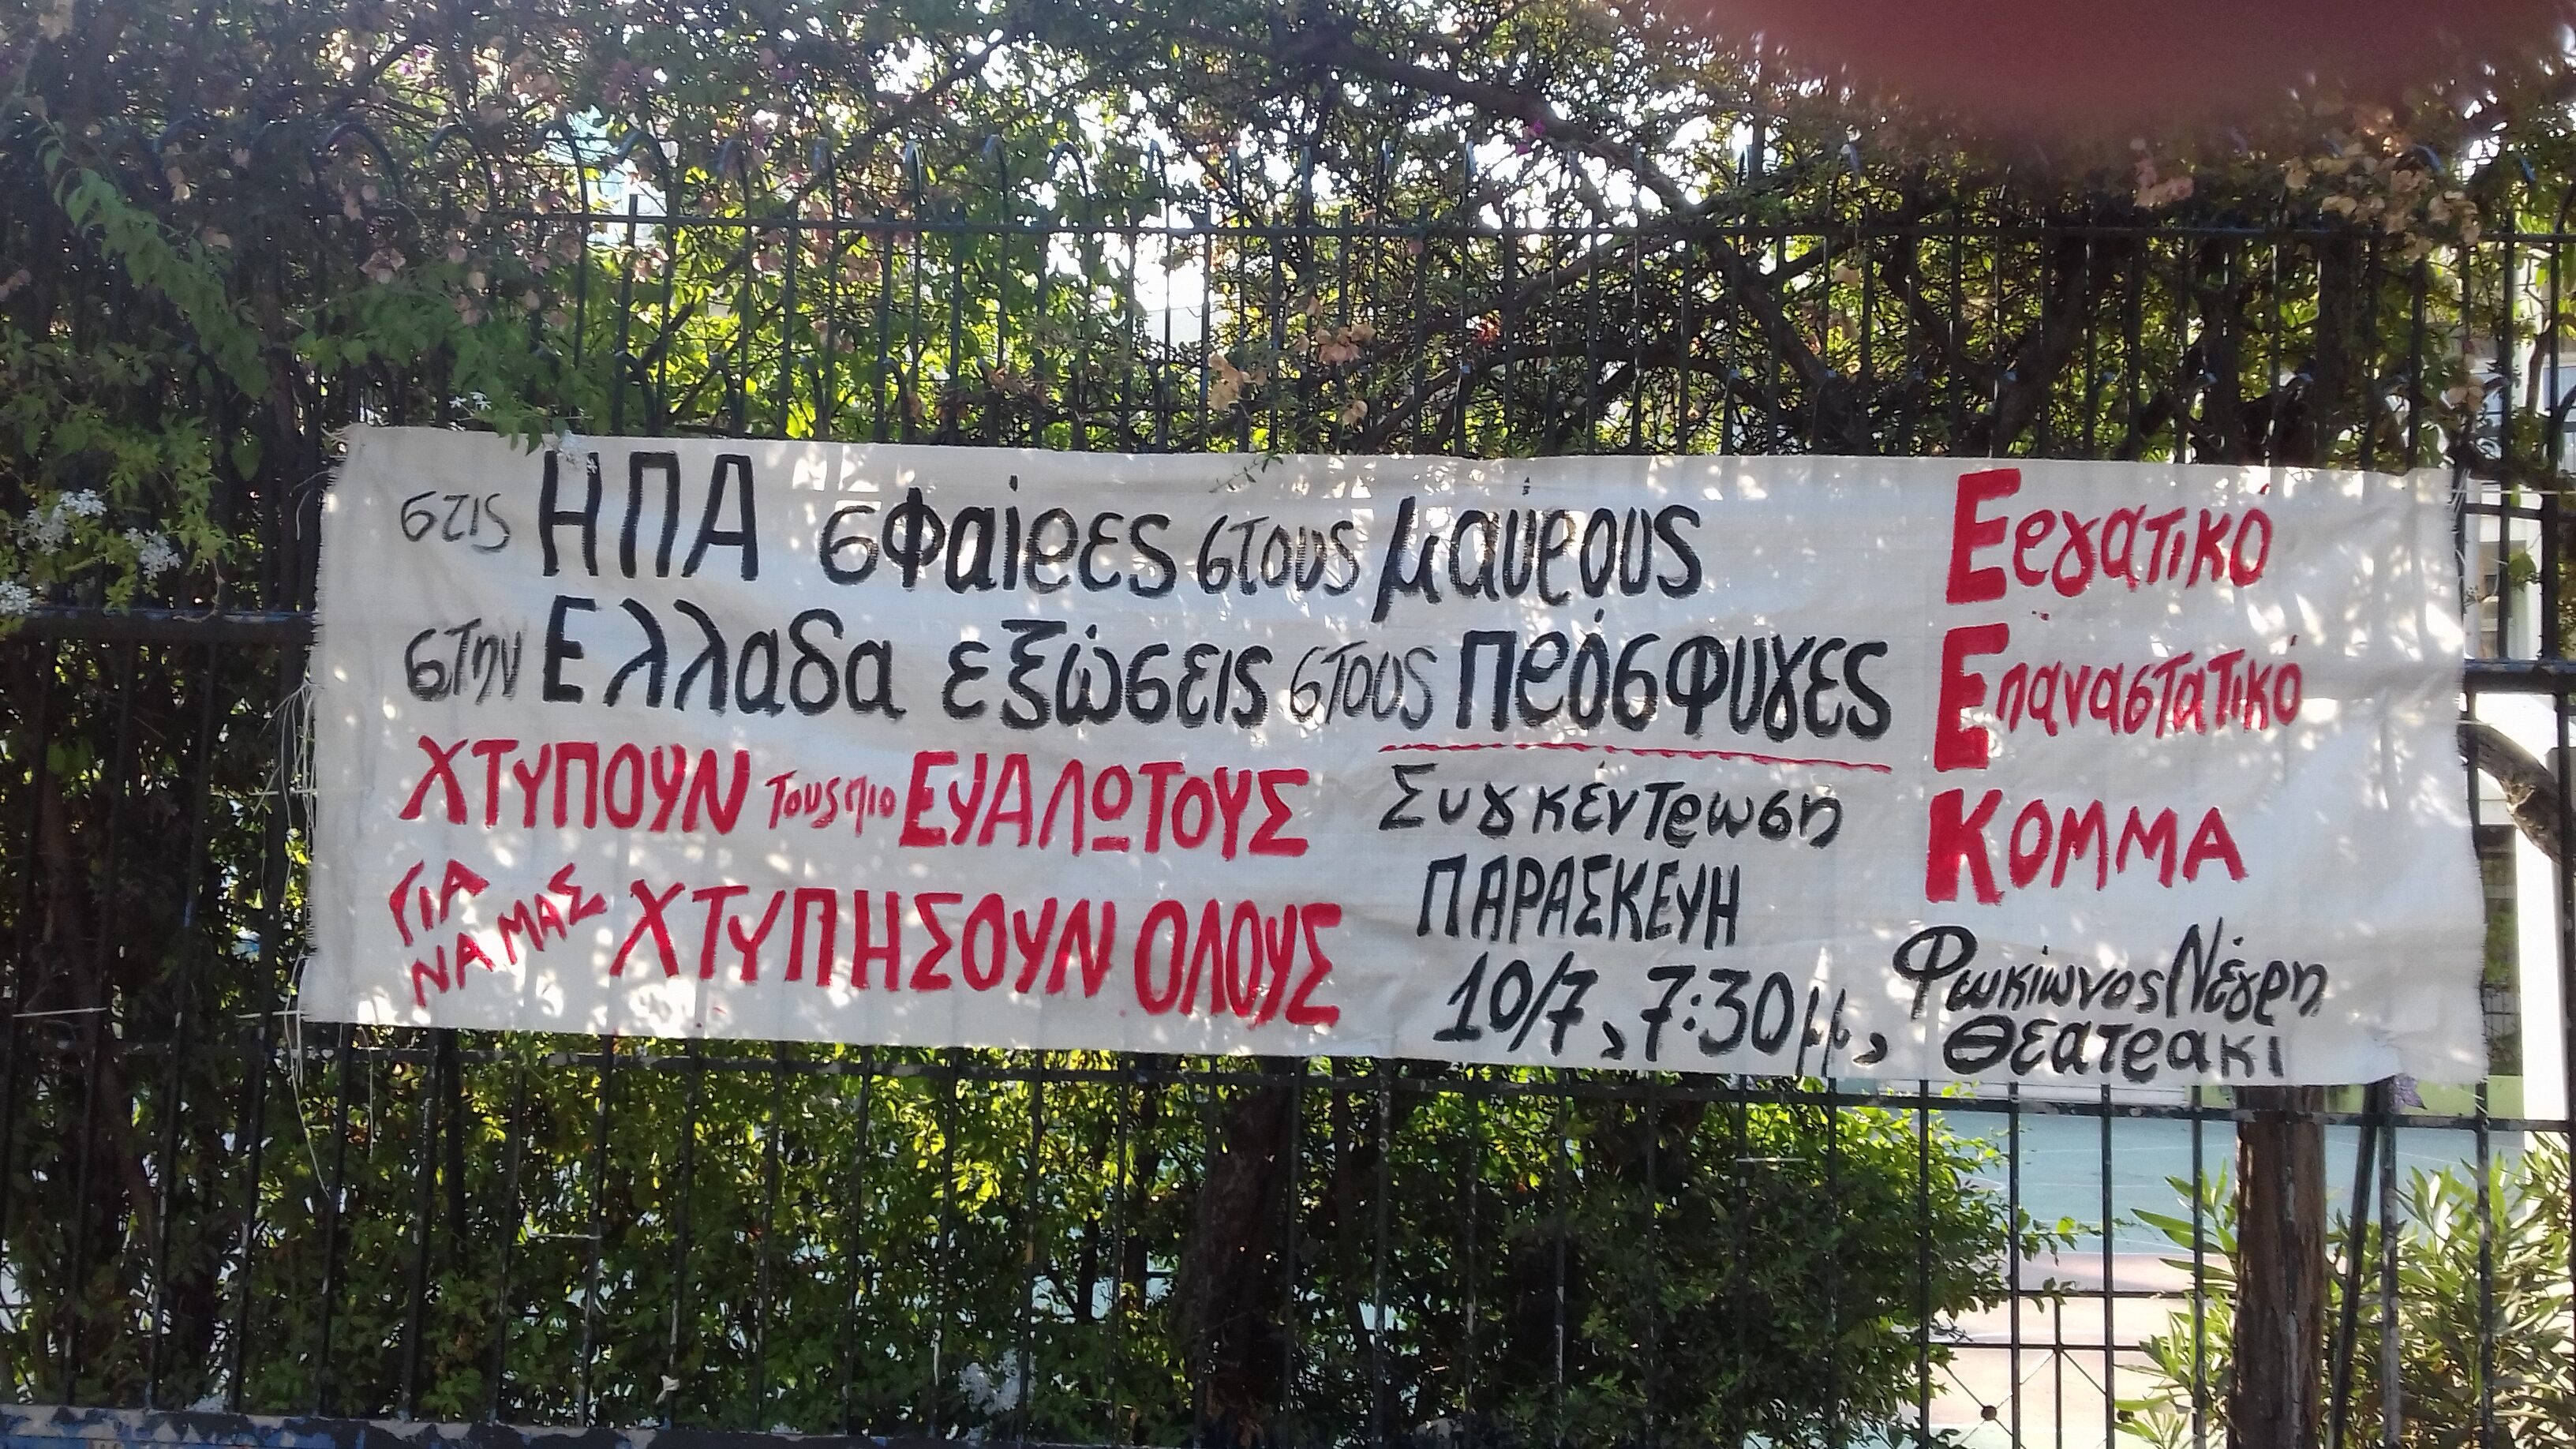 στις ΗΠΑ σφαίρες στους μαύρους
στην Ελλαδα εξώσεις στους πρόσφυγες
ΧΤΥΠΟΥΝ τους πιο ΕΥΑΛΩΤΟΥΣ
ΓΙΑ ΝΑ ΜΑΣ ΧΤΥΠΗΣΟΥΝ ΟΛΟΥΣ
Συγκέντρωση
ΠΑΡΑΣΚΕΥΗ
10/7, 7:30μμ,
Φωκίωνος Νέγρη
Θεατρακι
Εργατικό
Επαναστατικό
ΚΟΜΜΑ